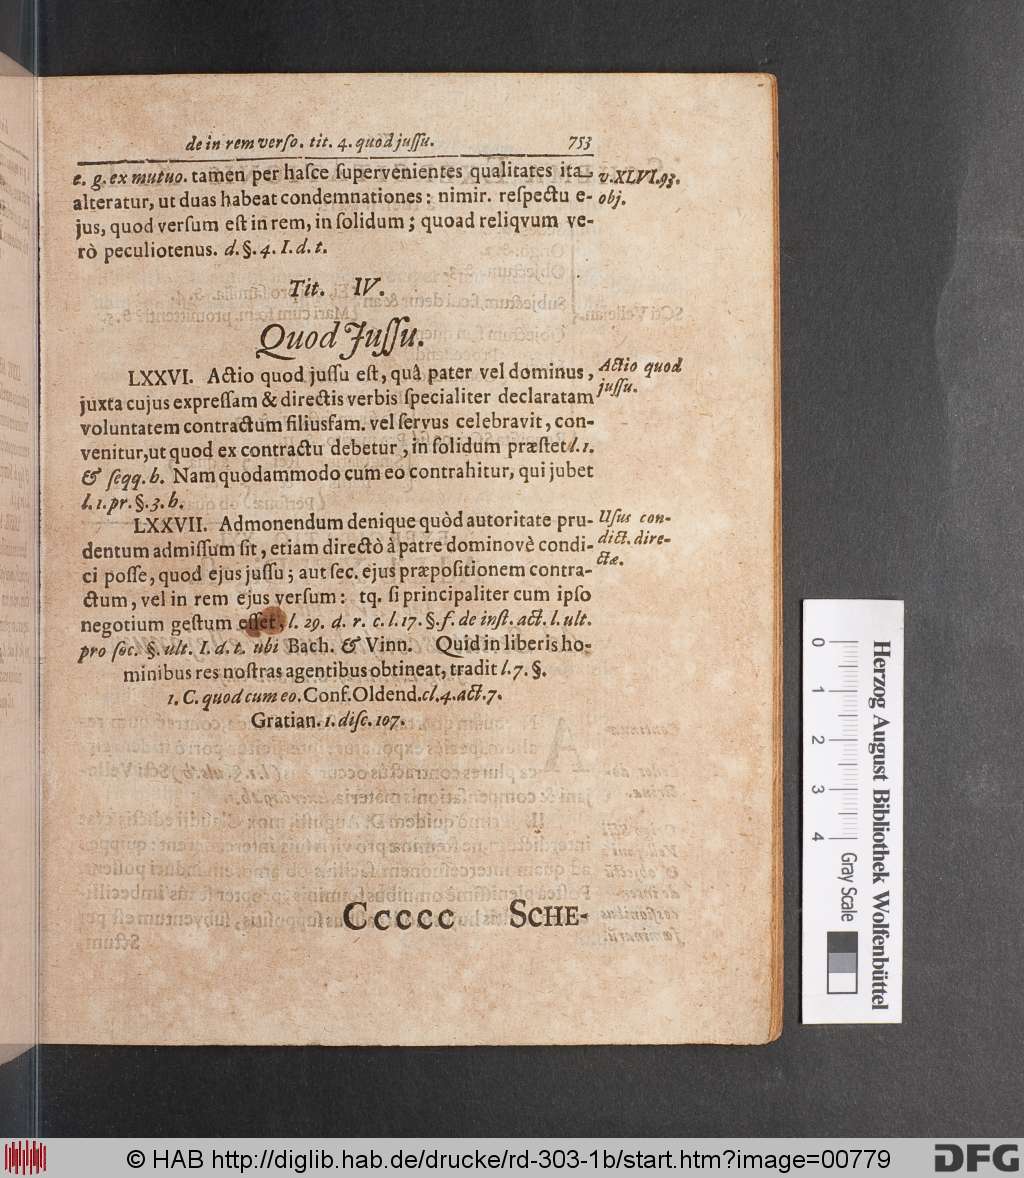 de in rem verso. tit. 4. quod jussu. 753
e. g. ex mutuo. tamen per hasce supervenientes qualitates ita
alteratur, ut duas habeat condemnationes: nimir. respectu e-
jus, quod versum est in rem, in solidum; quoad reliqvum ve-
rò peculiotenus. d. §. 4. I. d. t.
v. XLVI. 93.
obj.
Tit. IV.
Quod Jussu.
LXXVI. Actio quod jussu est, quâ pater vel dominus,
juxta cujus expressam & directis verbis specialiter declaratam
voluntatem contractum filiusfam. vel servus celebravit, con-
venitur, ut quod ex contractu debetur, in solidum præstet l. 1.
& seqq. h. Nam quodammodo cum eo contrahitur, qui jubet
l. 1. pr. §. 3. h.
Actio quod
jussu.
LXXVII. Admonendum denique quòd autoritate pru-
dentum admissum sit, etiam directò à patre dominovè condi-
ci posse, quod ejus jussu; aut sec. ejus præpositionem contra-
ctum, vel in rem ejus versum: tq. si principaliter cum ipso
negotium gestum esset, l. 29. d. r. c. l. 17. §. f. de inst. act. l. ult.
pro soc. §. ult. I. d. t. ubi Bach. & Vinn. Quid in liberis ho-
minibus res nostras agentibus obtineat, tradit l. 7. §.
1. C. quod cum eo. Conf. Oldend. cl. 4. act. 7.
Gratian. 1. disc. 107.
Usus con-
dict. dire-
ctæ.
Ccccc SCHE-
0 1 2 3 4 Gray Scale
Herzog August Bibliothek Wolfenbüttel
© HAB http://diglib.hab.de/drucke/rd-303-1b/start.htm?image=00779
DFG